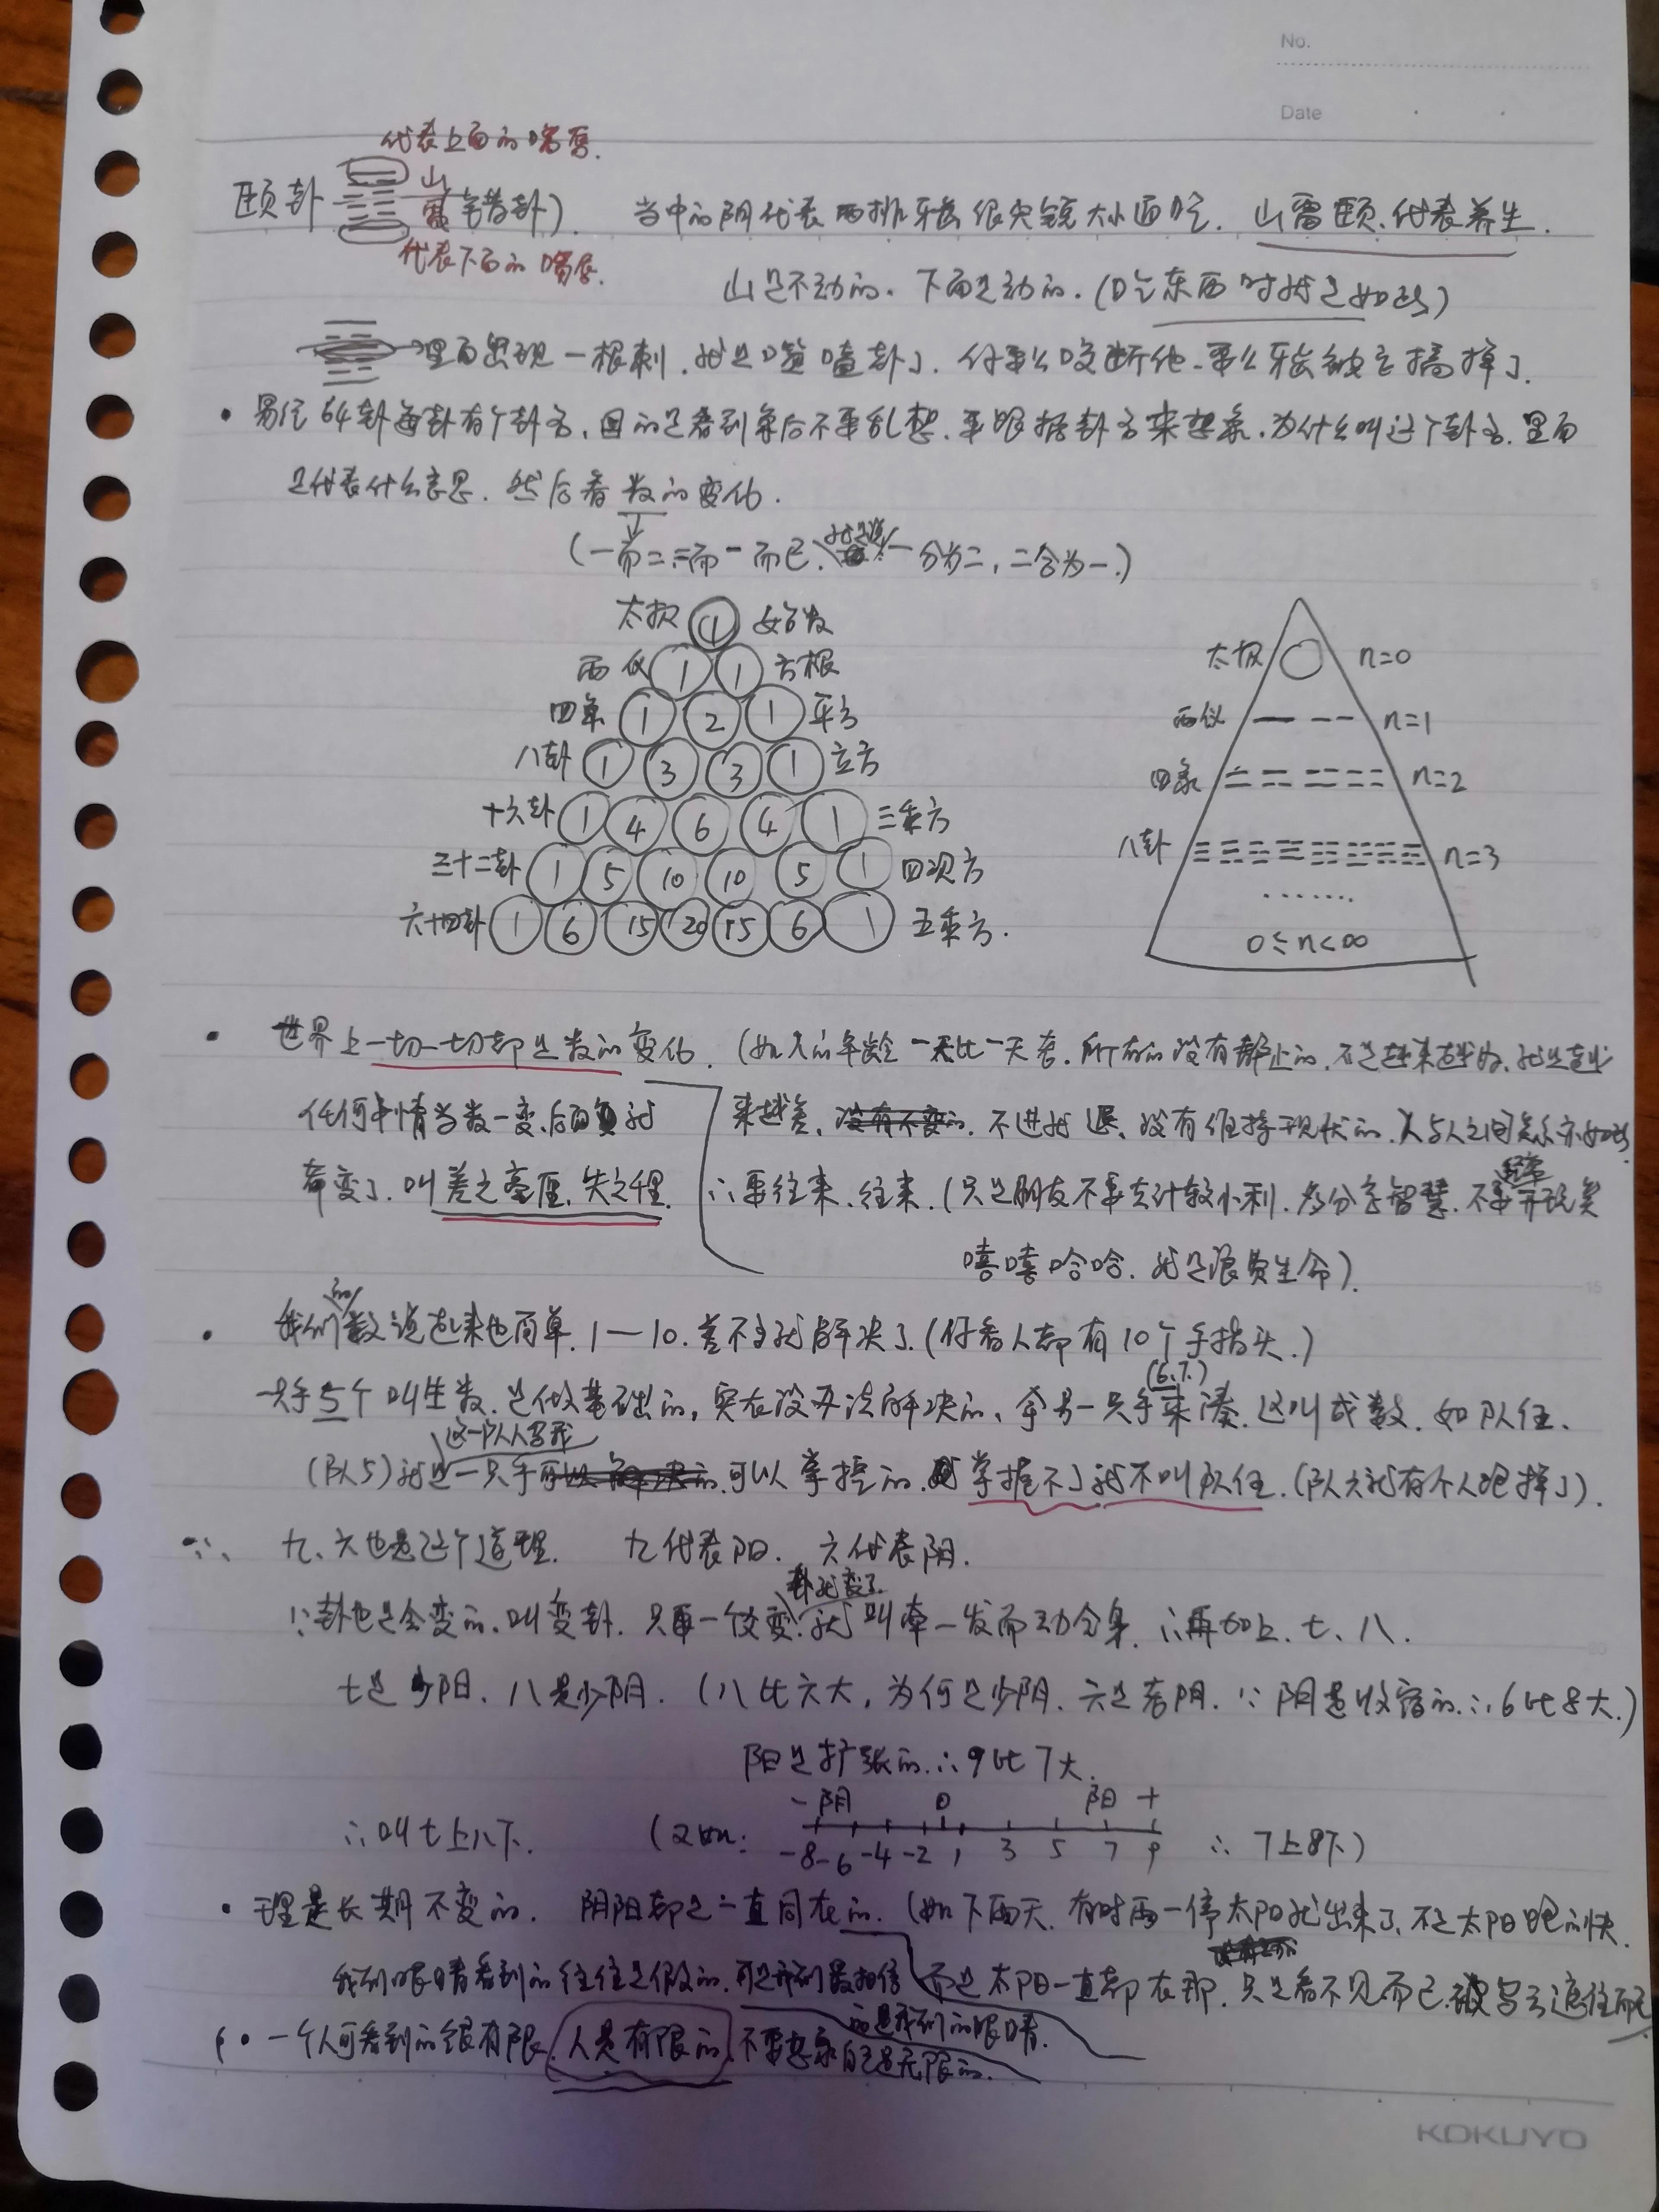 No.
Date
代表上面的嘴唇.
颐卦 山雷 错卦) 当中的阴代表两排牙齿很尖锐大小通吃. 山雷颐、代表养生.
代表下面的嘴唇.
山是不动的. 下面是动的. (吃东西时就是如此)
里面出现一根刺. 就是噬嗑卦了. 你要么咬断他. 要么牙齿被它搞掉了.
• 易经64卦每卦有个卦名, 目的是看到象后不要乱想. 要根据卦名来想象. 为什么叫这个卦名. 里面
是代表什么意思. 然后看数的变化.
(一而二二而一而已. 就是说 一分为二, 二合为一.)
太极 1 始数
两仪 1 1 方根
四象 1 2 1 平方
八卦 1 3 3 1 立方
十六卦 1 4 6 4 1 三乘方
三十二卦 1 5 10 10 5 1 四次方
六十四卦 1 6 15 20 15 6 1 五乘方.
太极 n=0
两仪 n=1
四象 n=2
八卦 n=3
.......
0≤n<∞
• 世界上一切一切都是数的变化. (如人的年龄一天比一天老. 所有的没有静止的. 不是越来越好. 就是越
任何事情当数一变, 后面就 来越差, 没有不变的. 不进就退、没有维持现状的. 人与人之间关系亦如此
都变了. 叫差之毫厘, 失之千里. ∴要往来、往来. (只是朋友不要去计较小利. 多分享智慧. 不要经常开玩笑
嘻嘻哈哈. 就是浪费生命).
• 我们的数说起来也简单. 1—10. 差不多就解决了. (你看人都有10个手指头.)
(6.7.)
一只手5个叫生数. 是做基础的, 实在没办法解决的, 拿另一只手来凑. 这叫成数. 如队伍.
这一队人马我
(队5) 就是一只手可以解决的 可以掌控的. 掌握不了就不叫队伍. (队六就有个人跑掉了).
∵ 九、六也是这个道理. 九代表阳. 六代表阴.
卦就变了.
∵卦也是会变的. 叫变卦. 只要一个爻变. 就叫牵一发而动全身. ∴再加上、七、八.
七是少阳. 八是少阴. (八比六大, 为何是少阴. 六是老阴. ∵阴是收缩的∴6比8大.)
阳是扩张的. ∴9比7大.
- 阴 0 阳 +
∴叫七上八下. (又如: -8 -6 -4 -2 1 3 5 7 9 ∴7上8下)
• 理是长期不变的. 阴阳都是一直同在的. (如下雨天. 有时雨一停太阳就出来了, 不是太阳跑的快.
我们眼睛看到的往往是假的. 可是我们最相信 而是太阳一直都在那. 只是看不见而已. 被乌云遮住而已
的是我们的眼睛.
• 一个人可看到的很有限. 人是有限的 不要想象自己是无限的.
KOKUYO